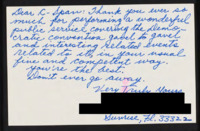 Dear C-Span: Thank you ever so
much for performing a wonderful
public service covering the Demo-
cratic convention gavel to gavel
and interesting related events
related to it, in your usual
fine and competent way.
You're the best.
Don't ever go away.
Very Truly Yours
Sunrise, Fl. 33322